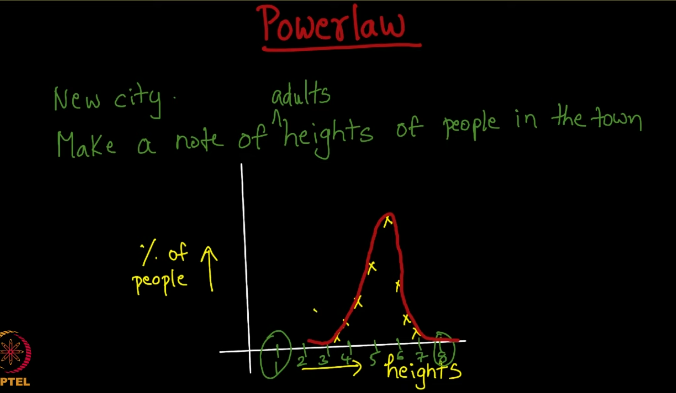 Powerlaw
New city.
adults
Make a note of ^ heights of people in the town
% of
people
1 2 3 4 5 6 7 8
heights
PTEL